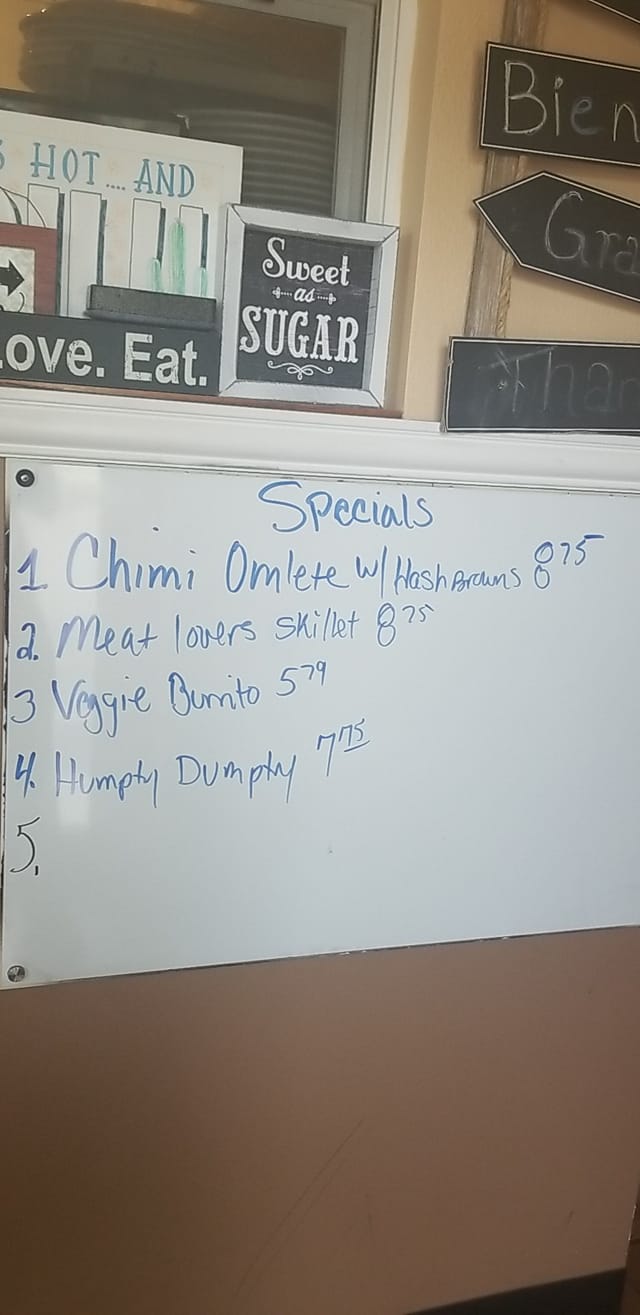 HOT.... AND
Sweet
as
SUGAR
Love. Eat.
Bien
Gra
Than
Specials
1 Chimi Omlete w/ Hash Browns 8 75
2. Meat lovers skillet 8 75
3 Veggie Burrito 5 79
4. Humpty Dumpty 7 75
5.